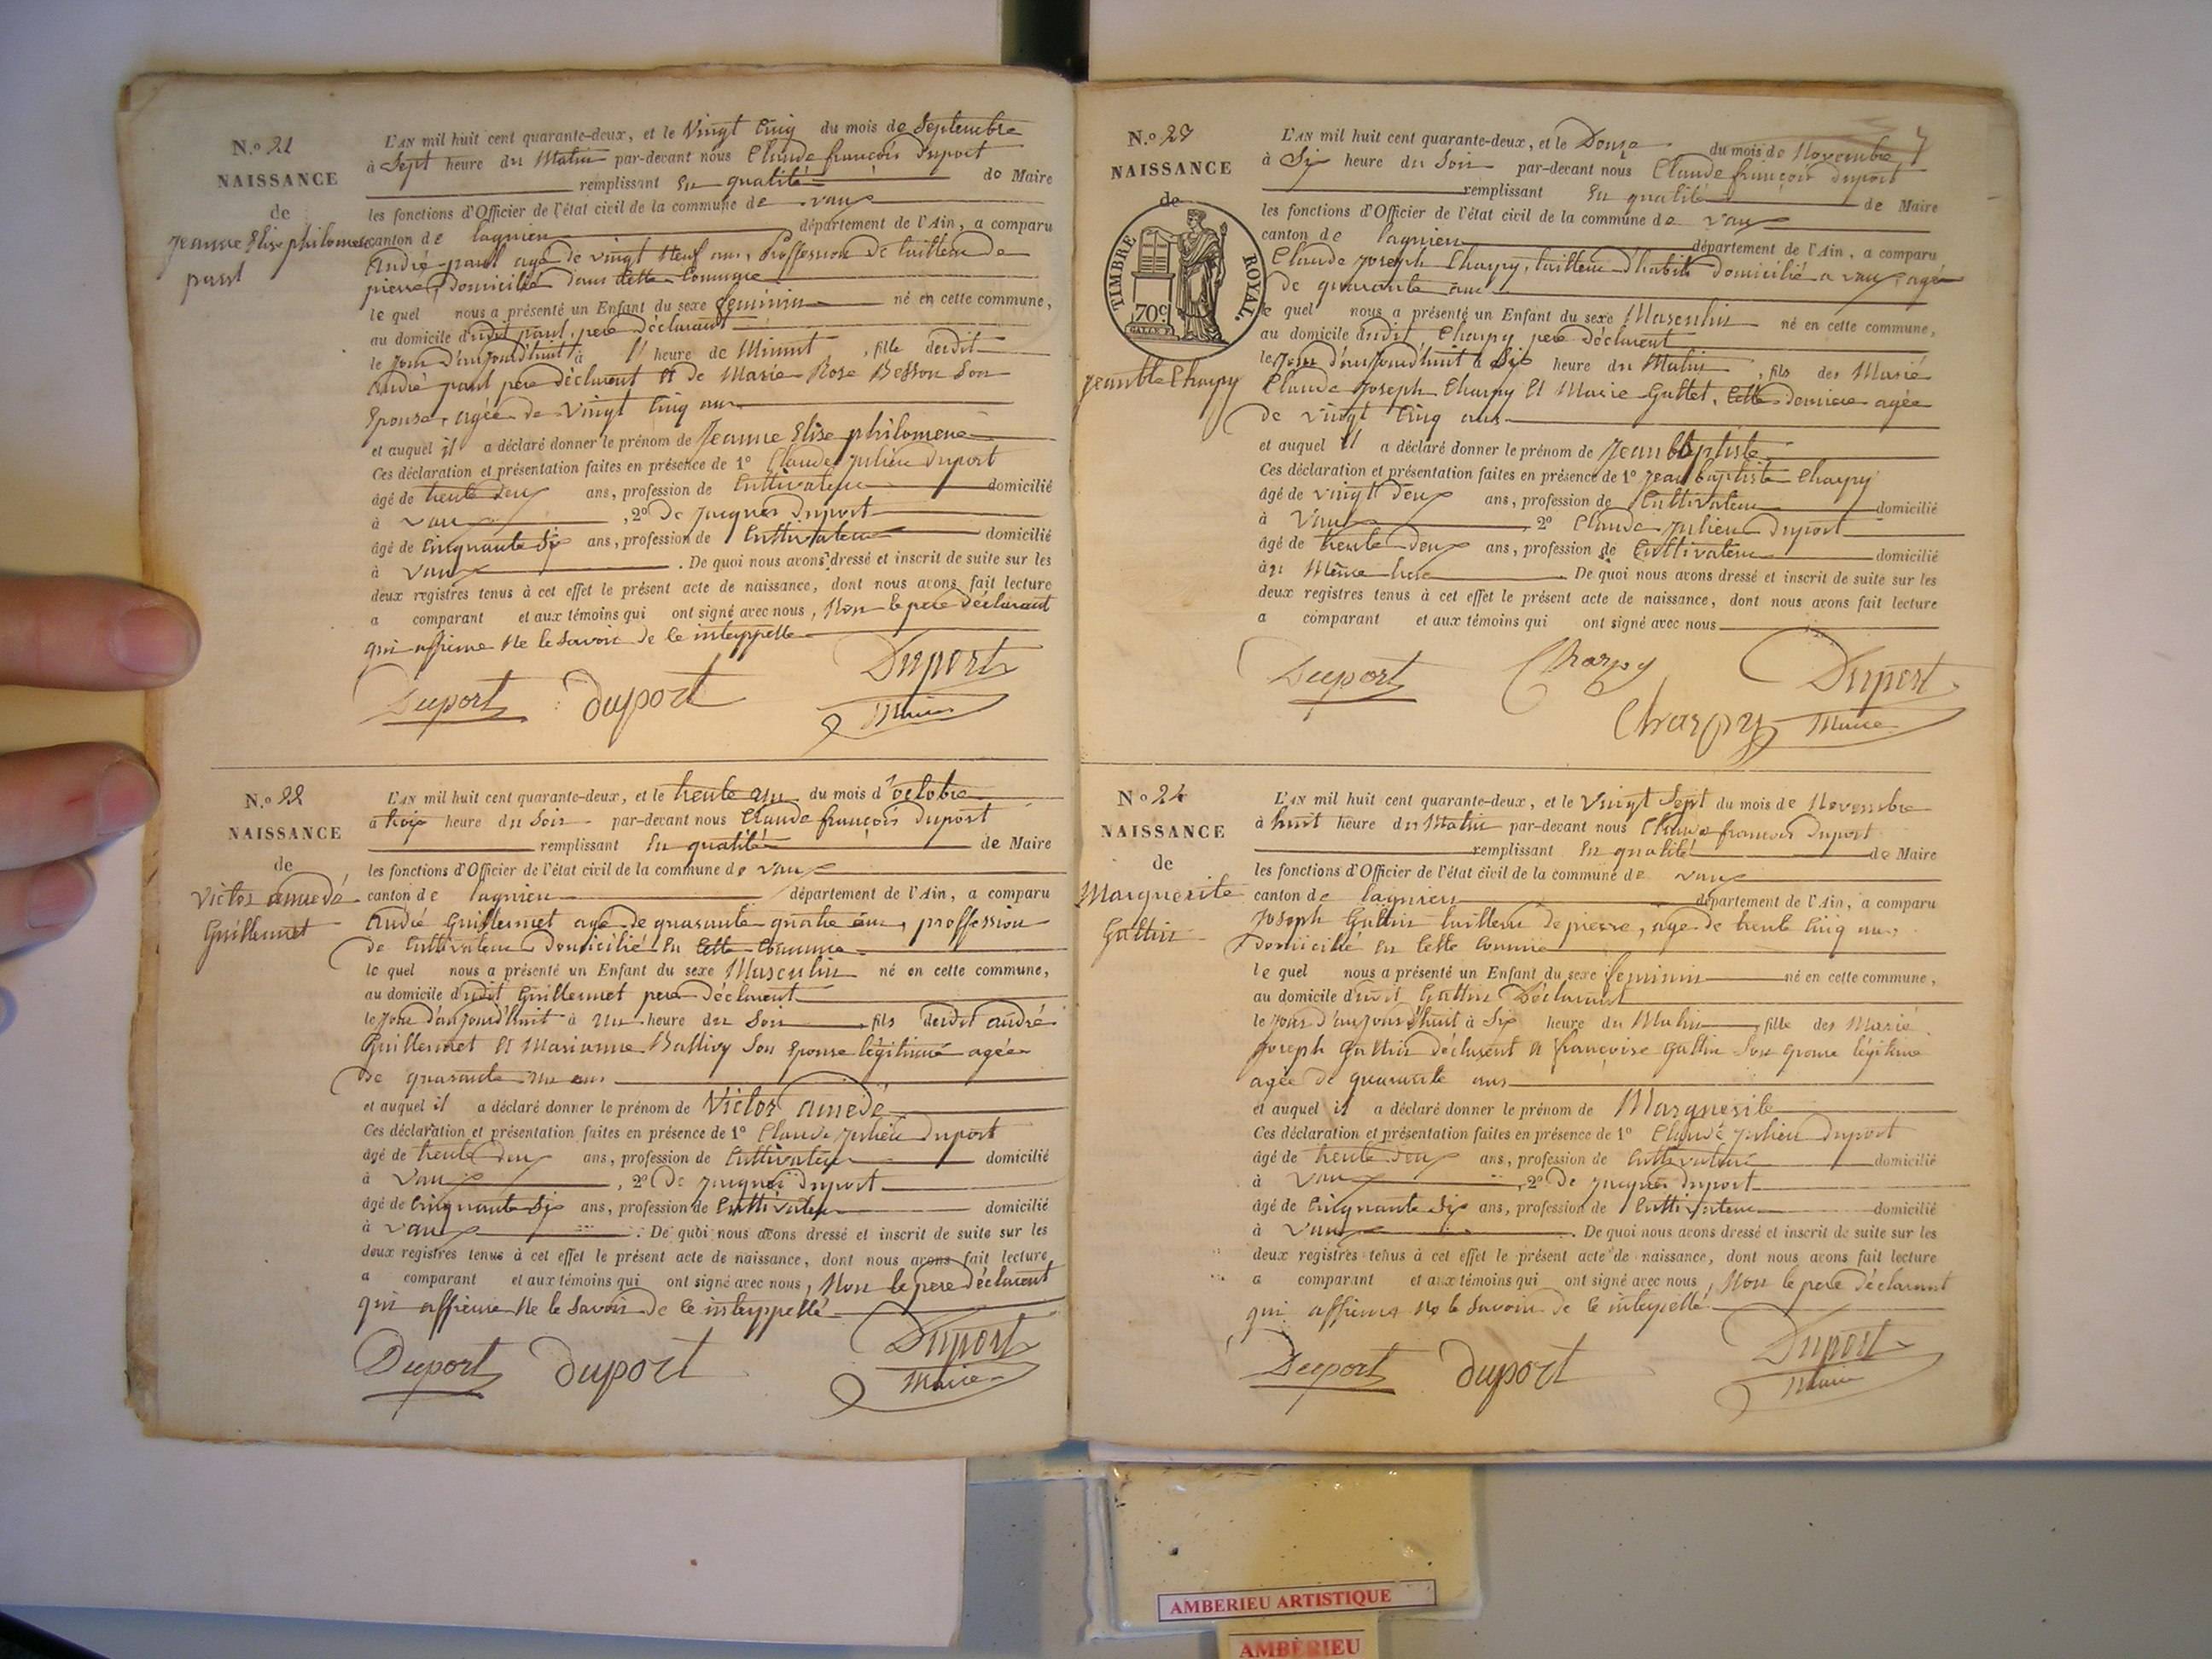 N.º 21
NAISSANCE
de
Jeanne Elise philomene
paul
L'AN mil huit cent quarante-deux, et le Vingt Cinq du mois de Septembre
à Sept heure du Matin par-devant nous Claude françois Duport
remplissant En qualité de Maire
les fonctions d'Officier de l'état civil de la commune de vaux
canton de lagnieu département de l'Ain, a comparu
André paul agé de vingt Neuf ans, Proffession de tailleur de
pierre, Domicilié dans Cette Commune
le quel nous a présenté un Enfant du sexe feminin né en cette commune,
au domicile dudit paul, pere déclarant
le Jour d'aujourd'huit à l' heure de Minuit, fille dudit
André paul pere déclarant Et de Marie Rose Besson Son
Epouse, agée de Vingt Cinq ans
et auquel il a déclaré donner le prénom de Jeanne Elise philomene
Ces déclaration et présentation faites en présence de 1º Claude Julien Duport
âgé de trente deux ans, profession de Cultivateur domicilié
à vaux, 2º De Jacques Duport
âgé de Cinquante Six ans, profession de Cultivateur domicilié
à vaux. De quoi nous avons dressé et inscrit de suite sur les
deux registres tenus à cet effet le présent acte de naissance, dont nous avons fait lecture
a comparant et aux témoins qui ont signé avec nous, Non le pere déclarant
qui affirme Ne le Savoir de ce interppelle
Duport duport Duport
Maire
N.º 22
NAISSANCE
de
Victor amedé
Guillermet
L'AN mil huit cent quarante-deux, et le trente un du mois d'octobre
à trois heure du Soir par-devant nous Claude françois Duport
remplissant En qualité de Maire
les fonctions d'Officier de l'état civil de la commune de vaux
canton de lagnieu département de l'Ain, a comparu
André Guillermet agé de quarante quatre ans, proffession
de Cultivateur Domicilié En Cette Commune
le quel nous a présenté un Enfant du sexe Masculin né en cette commune,
au domicile dudit Guillermet pere déclarant
le Jour d'aujourd'huit à Une heure du Soir, fils dudit andré
Guillermet Et Marianne Ballivy Son Epouse légitime agée
de quarante un ans
et auquel il a déclaré donner le prénom de Victor amedé
Ces déclaration et présentation faites en présence de 1º Claude Julien Duport
âgé de trente deux ans, profession de Cultivateur domicilié
à Vaux, 2º De Jacques Duport
âgé de Cinquante Six ans, profession de Cultivateur domicilié
à vaux. De quoi nous avons dressé et inscrit de suite sur les
deux registres tenus à cet effet le présent acte de naissance, dont nous avons fait lecture
a comparant et aux témoins qui ont signé avec nous, Non le pere déclarant
qui affirme Ne le Savoir de ce interppellé
Duport duport Duport
Maire
7
N.º 23
NAISSANCE
de
TIMBRE ROYAL.
70c
Jean bte Charpy
L'AN mil huit cent quarante-deux, et le Douze du mois de Novembre
à Six heure du Soir par-devant nous Claude françois Duport
remplissant En qualité de Maire
les fonctions d'Officier de l'état civil de la commune de vaux
canton de lagnieu département de l'Ain, a comparu
Claude Joseph Charpy, tailleur d'habits Domicilié a vaux, agé
de quarante ans
le quel nous a présenté un Enfant du sexe Masculin né en cette commune,
au domicile dudit Charpy pere déclarent
le Jour d'aujourd'huit à Six heure du Matin, fils des Marié
Claude Joseph Charpy Et Marie Gattet, Cette derniere agée
de vingt Cinq ans
et auquel il a déclaré donner le prénom de Jean Baptiste
Ces déclaration et présentation faites en présence de 1º Jean baptiste Charpy
âgé de vingt deux ans, profession de Cultivateur domicilié
à Vaux 2º Claude Julien Duport
âgé de trente deux ans, profession de Cultivateur domicilié
à Même lieu. De quoi nous avons dressé et inscrit de suite sur les
deux registres tenus à cet effet le présent acte de naissance, dont nous avons fait lecture
a comparant et aux témoins qui ont signé avec nous
Duport Charpy Duport
Charpy Maire
Nº 24
NAISSANCE
de
Marguerite
Gattin
L'AN mil huit cent quarante-deux, et le Vingt Sept du mois de Novembre
à huit heure du Matin par-devant nous Claude francois Duport
remplissant En qualité de Maire
les fonctions d'Officier de l'état civil de la commune de vaux
canton de lagnieu département de l'Ain, a comparu
Joseph Gattin tailleur de pierre, age de trente Cinq ans,
Domicilié en Cette Commune
le quel nous a présenté un Enfant du sexe feminin né en cette commune,
au domicile dudit Gattin Déclarant
le Jour d'aujourd'huit à Six heure du Matin, fille des Marié
Joseph Gattin déclarent Et françoise Gattin Son Epouse légitime
agée de quarante ans
et auquel il a déclaré donner le prénom de Marguerite
Ces déclaration et présentation faites en présence de 1º Claude Julien Duport
âgé de trente deux ans, profession de Cultivateur domicilié
à Vaux, 2º De Jacques Duport
âgé de Cinquante Six ans, profession de Cultivateur domicilié
à vaux. De quoi nous avons dressé et inscrit de suite sur les
deux registres tenus à cet effet le présent acte de naissance, dont nous avons fait lecture
a comparant et aux témoins qui ont signé avec nous, Non le pere déclarant
qui affirme Ne le Savoir de ce interpellé
Duport duport Duport
Maire
AMBERIEU ARTISTIQUE
AMBÉRIEU